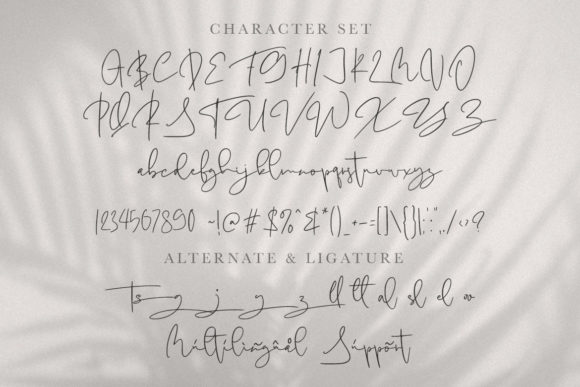 CHARACTER SET
ABCDEFGHIJKLMNO
PQRSTUVWXYZ
abcdefghijklmnopqrstuvwxyz
1234567890 ~!@#$%^&*()_+-=[]\{}|:;",./<>?
ALTERNATE & LIGATURE
Ts g j y z ll tt al sl el
Múltilingûål Súppõrt